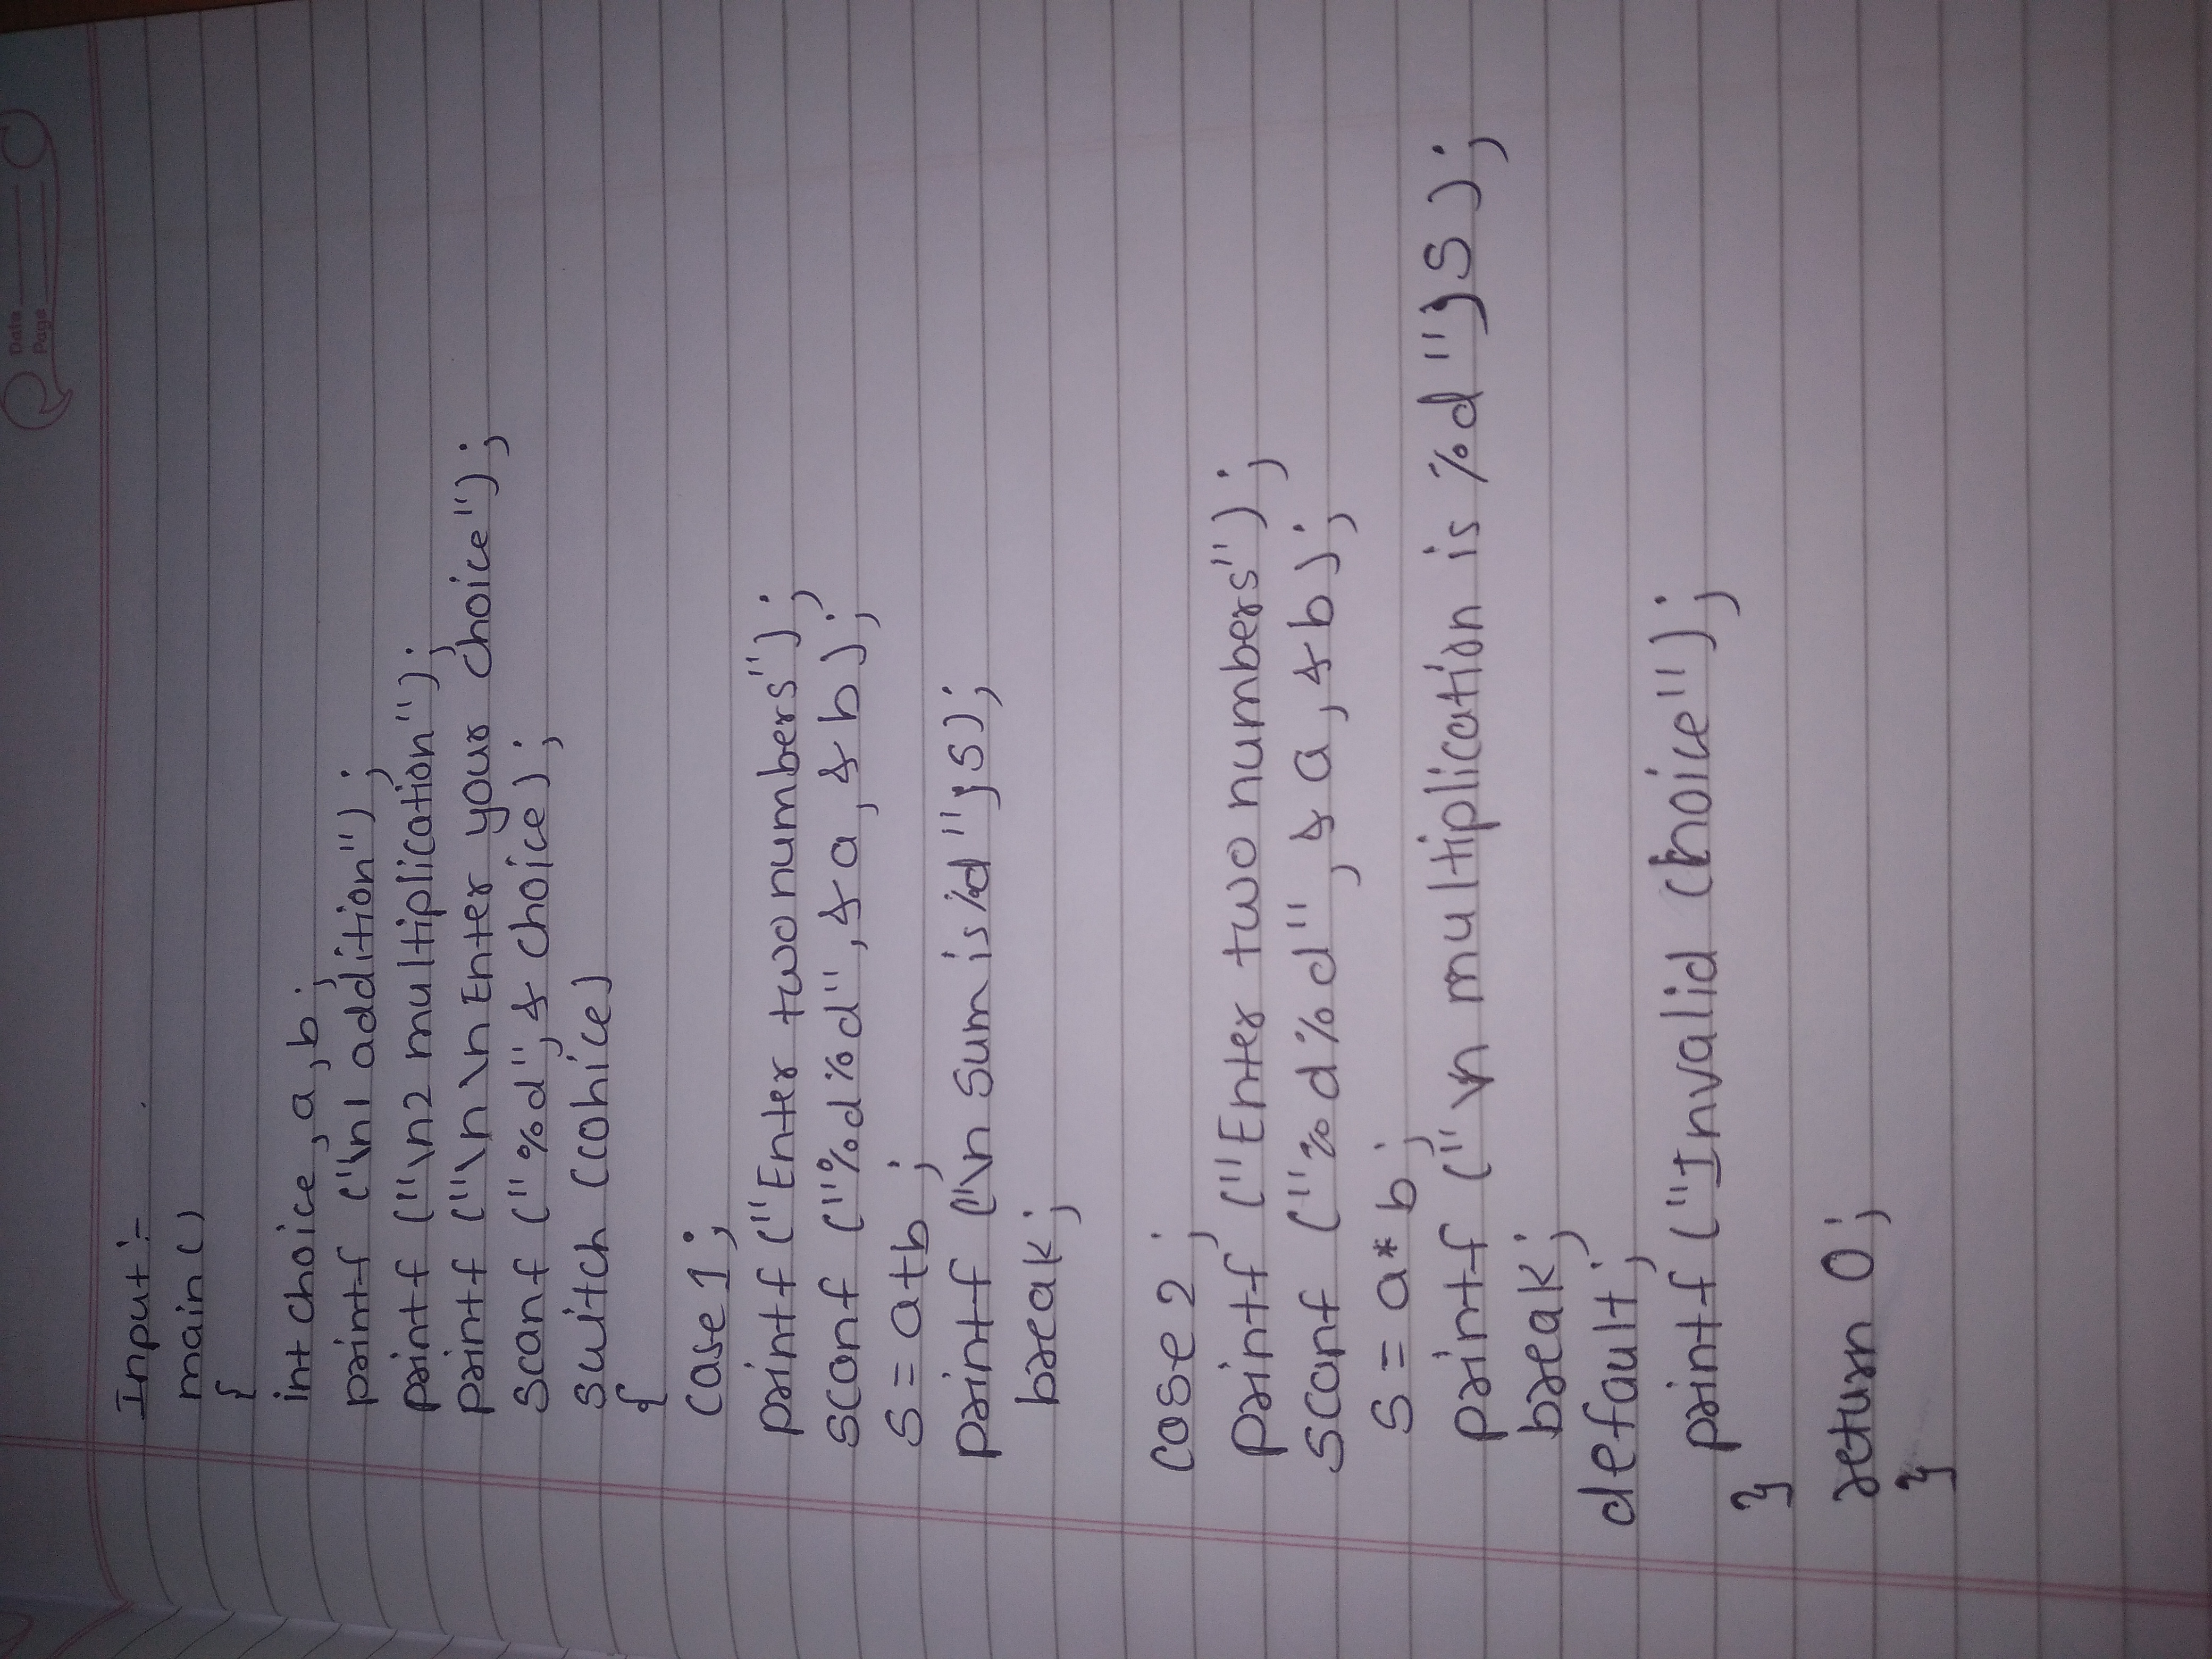 Date
Page
Input :-
main ()
{
int choice, a, b;
printf ("\n1 addition");
printf ("\n2 multiplication");
printf ("\n \n Enter your choice");
scanf ("%d", & choice);
switch (cohice)
{
case 1;
printf ("Enter two numbers");
scanf ("%d%d", & a, & b);
s = a+b ;
printf ("\n Sum is %d "; s);
break;
case 2 ;
printf ("Enter two numbers");
scanf ("%d%d", & a, & b);
s = a* b;
printf (" \n multiplication is %d "; s );
break;
default;
printf ("Invalid choice");
}
return 0;
}